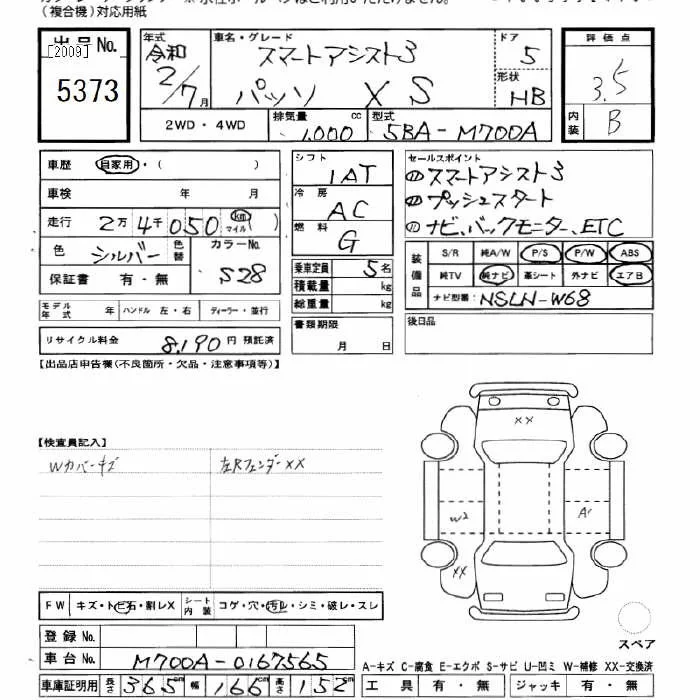 (複合機)対応用紙
出品No.
[2009]
5373
年式
令和
2/7月
車名・グレード
スマートアシスト3
パッソ XS
ドア
5
形状
HB
2WD・4WD
排気量
1,000
cc
型式
5BA-M700A
評価点
3.5
内装
B
車歴
自家用・( )
車検 年 月
走行 2万4千050 km マイル( )
色 シルバー 色替 カラーNo. S28
保証書 有・無
モデル年式 年 ハンドル 左・右 ディーラー・並行
リサイクル料金 8,190 円 預託済
シフト
1AT
冷房
AC
燃料
G
乗車定員 5名
積載量 kg
総重量 kg
書類期限
月 日
セールスポイント
スマートアシスト3
プッシュスタート
ナビ、バックモニター、ETC
装備品
S/R 純A/W P/S P/W ABS
純TV 純ナビ 革シート 外ナビ エアB
ナビ型番( NSLN-W68
後日品
【出品店申告欄(不良箇所・欠品・注意事項等)】
【検査員記入】
Wカバーキズ
左Rフェンダーxx
xx
W2
A1
xx
FW キズ・トビ石・割レX シート内装 コゲ・穴・汚レ・シミ・破レ・スレ
登録No.
車台No. M700A-0167565
車庫証明用 長さ 365cm 幅 166cm 高さ 152cm
スペア
A-キズ C-腐食 E-エクボ S-サビ U-凹ミ W-補修 XX-交換済
工具 有・無 ジャッキ 有・無